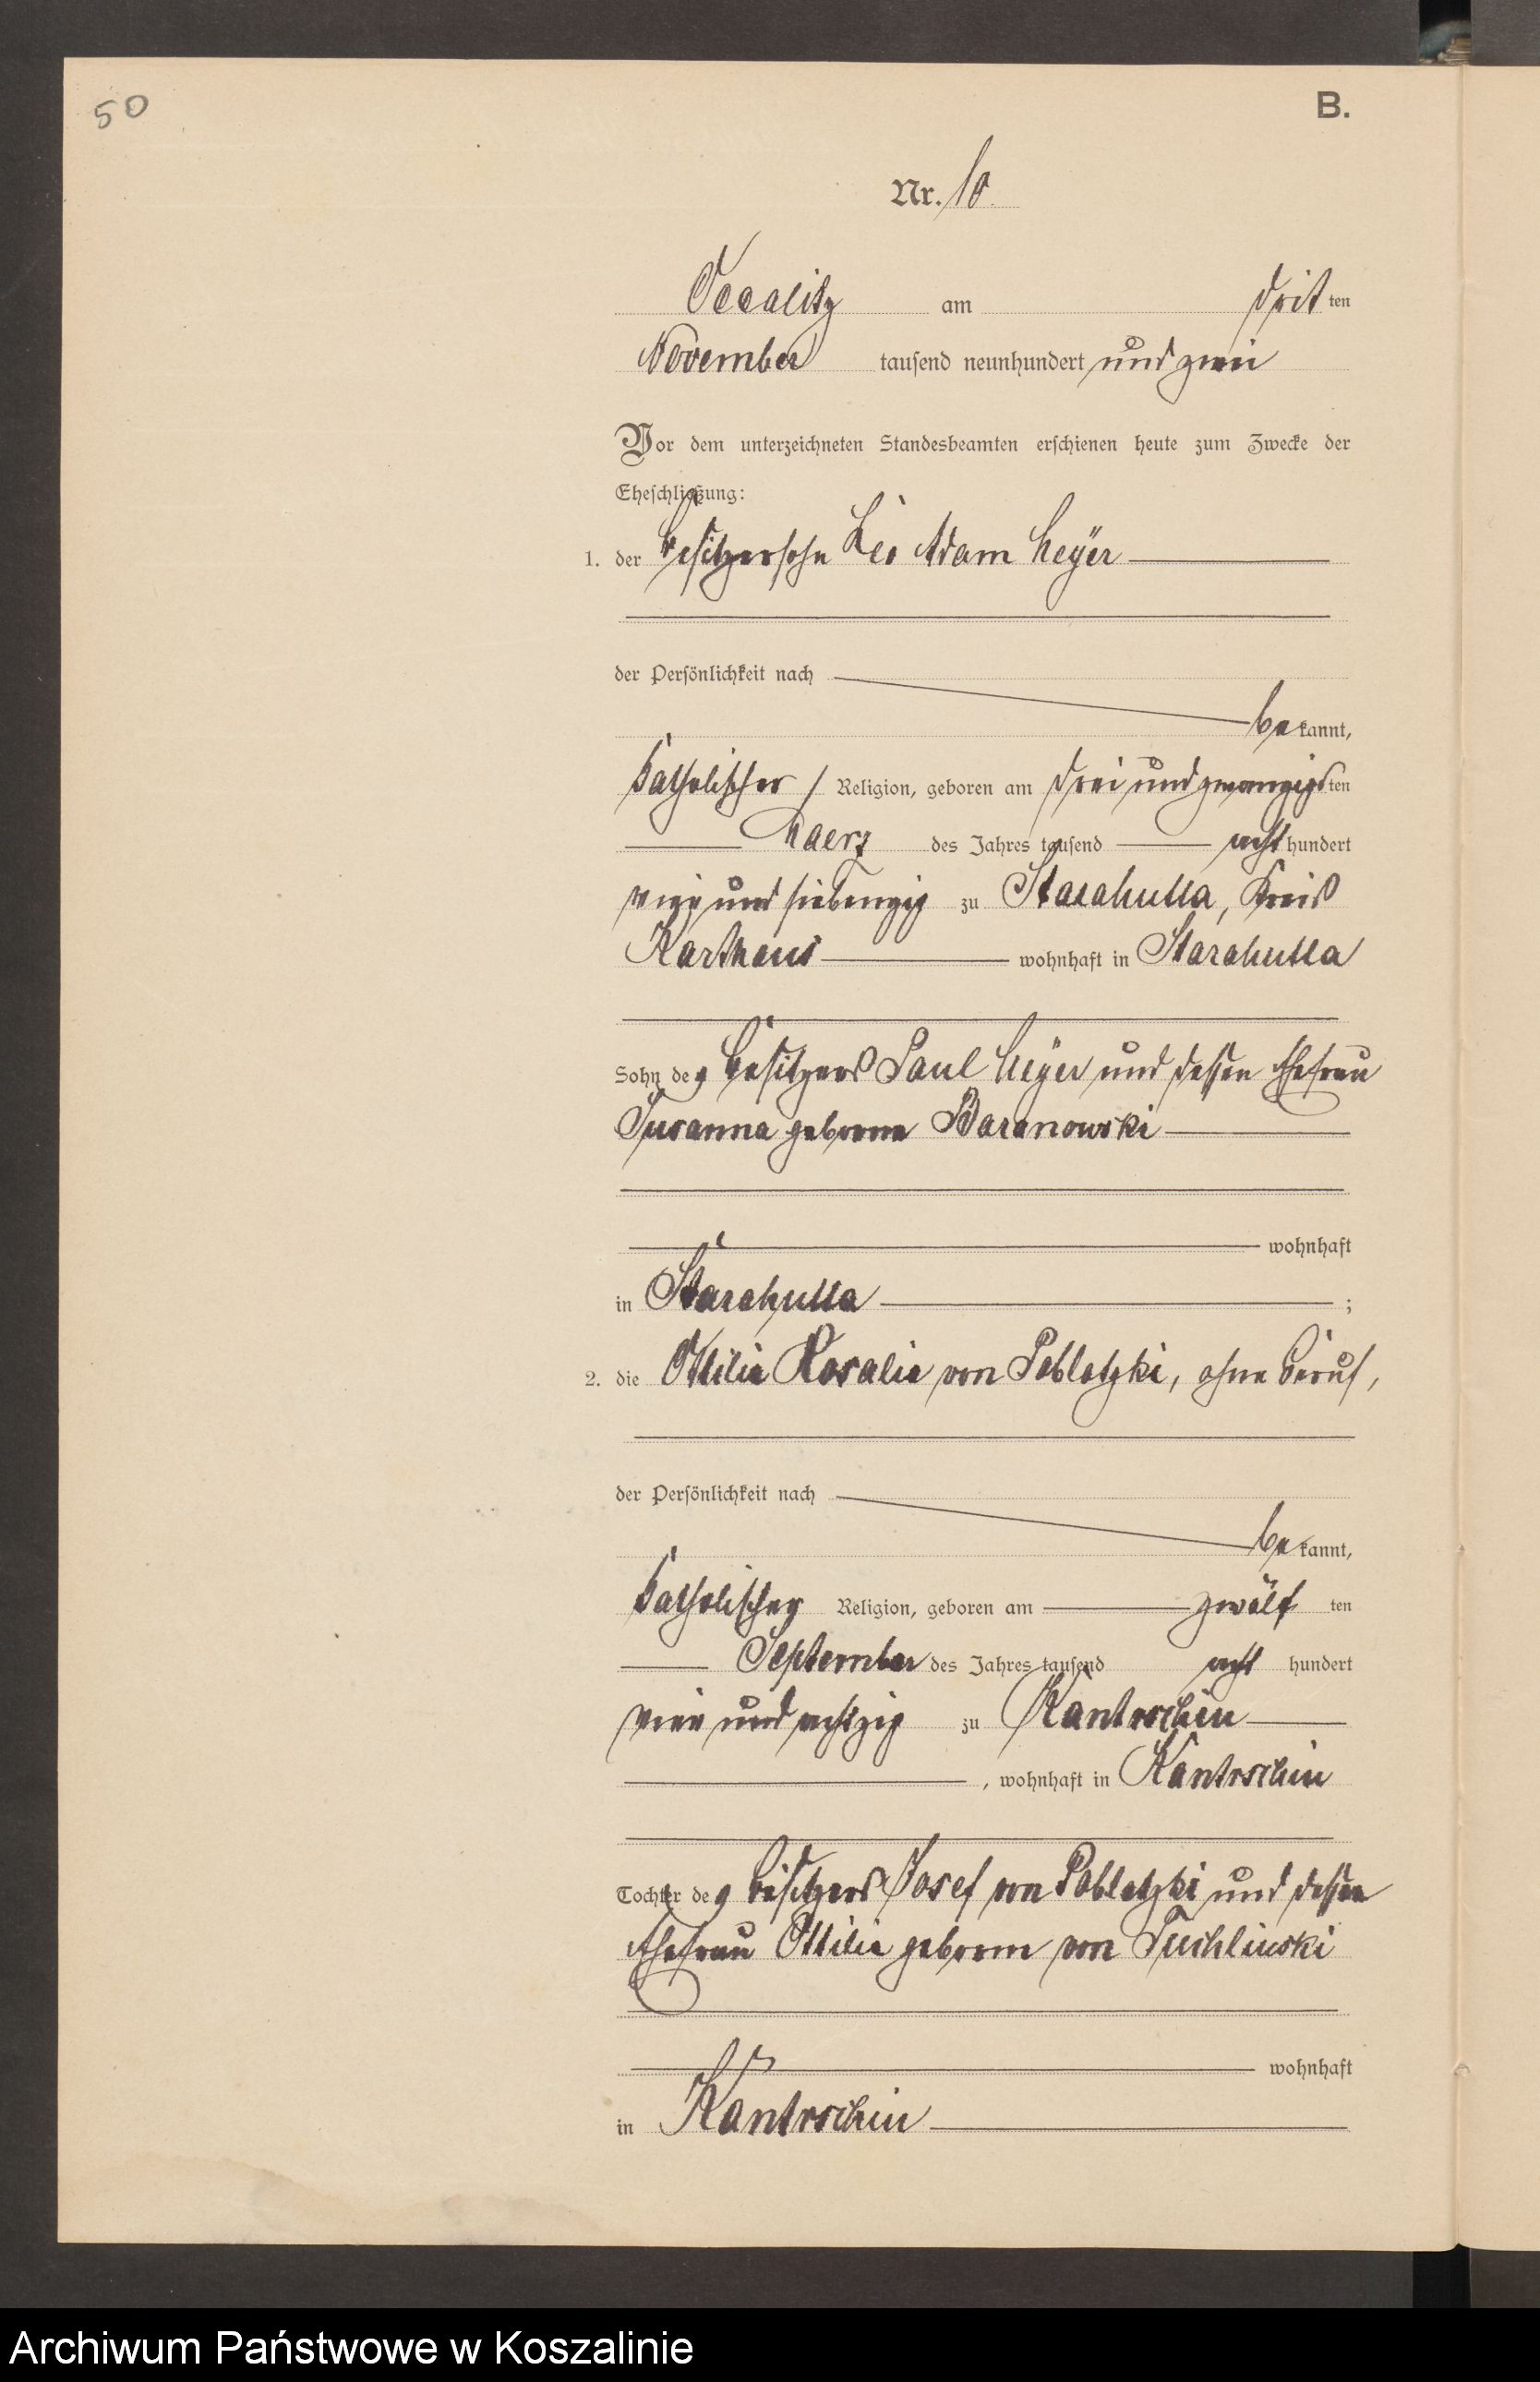 50
B.
Nr. 10.
Oscalitz am dritten
November tausend neunhundert und zwei
Vor dem unterzeichneten Standesbeamten erschienen heute zum Zwecke der
Eheschließung:
1. der Besitzersohn Leo Adam Meÿer
der Persönlichkeit nach
bekannt,
katholischer Religion, geboren am drei und zwanzigsten
Maerz des Jahres tausend achthundert
vier und siebenzig zu Starahutta, Kreis
Karthaus wohnhaft in Starahutta
Sohn des Besitzers Paul Meÿer und dessen Ehefrau
Susanna geborene Baranowski
wohnhaft
in Starahutta ;
2. die Ottilie Rosalie von Pobłotzki, ohne Beruf,
der Persönlichkeit nach
bekannt,
katholischer Religion, geboren am zwölf ten
September des Jahres tausend acht hundert
vier und achtzig zu Kantrschin
, wohnhaft in Kantrschin
Tochter des Besitzers Josef von Poblotzki und dessen
Ehefrau Ottilie geborene von Tuchlinski
wohnhaft
in Kantrschin
Archiwum Państwowe w Koszalinie